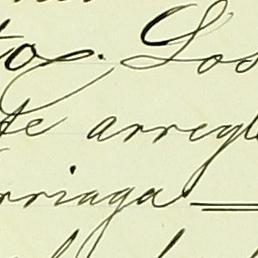 to. Los
te arregl
rriaga